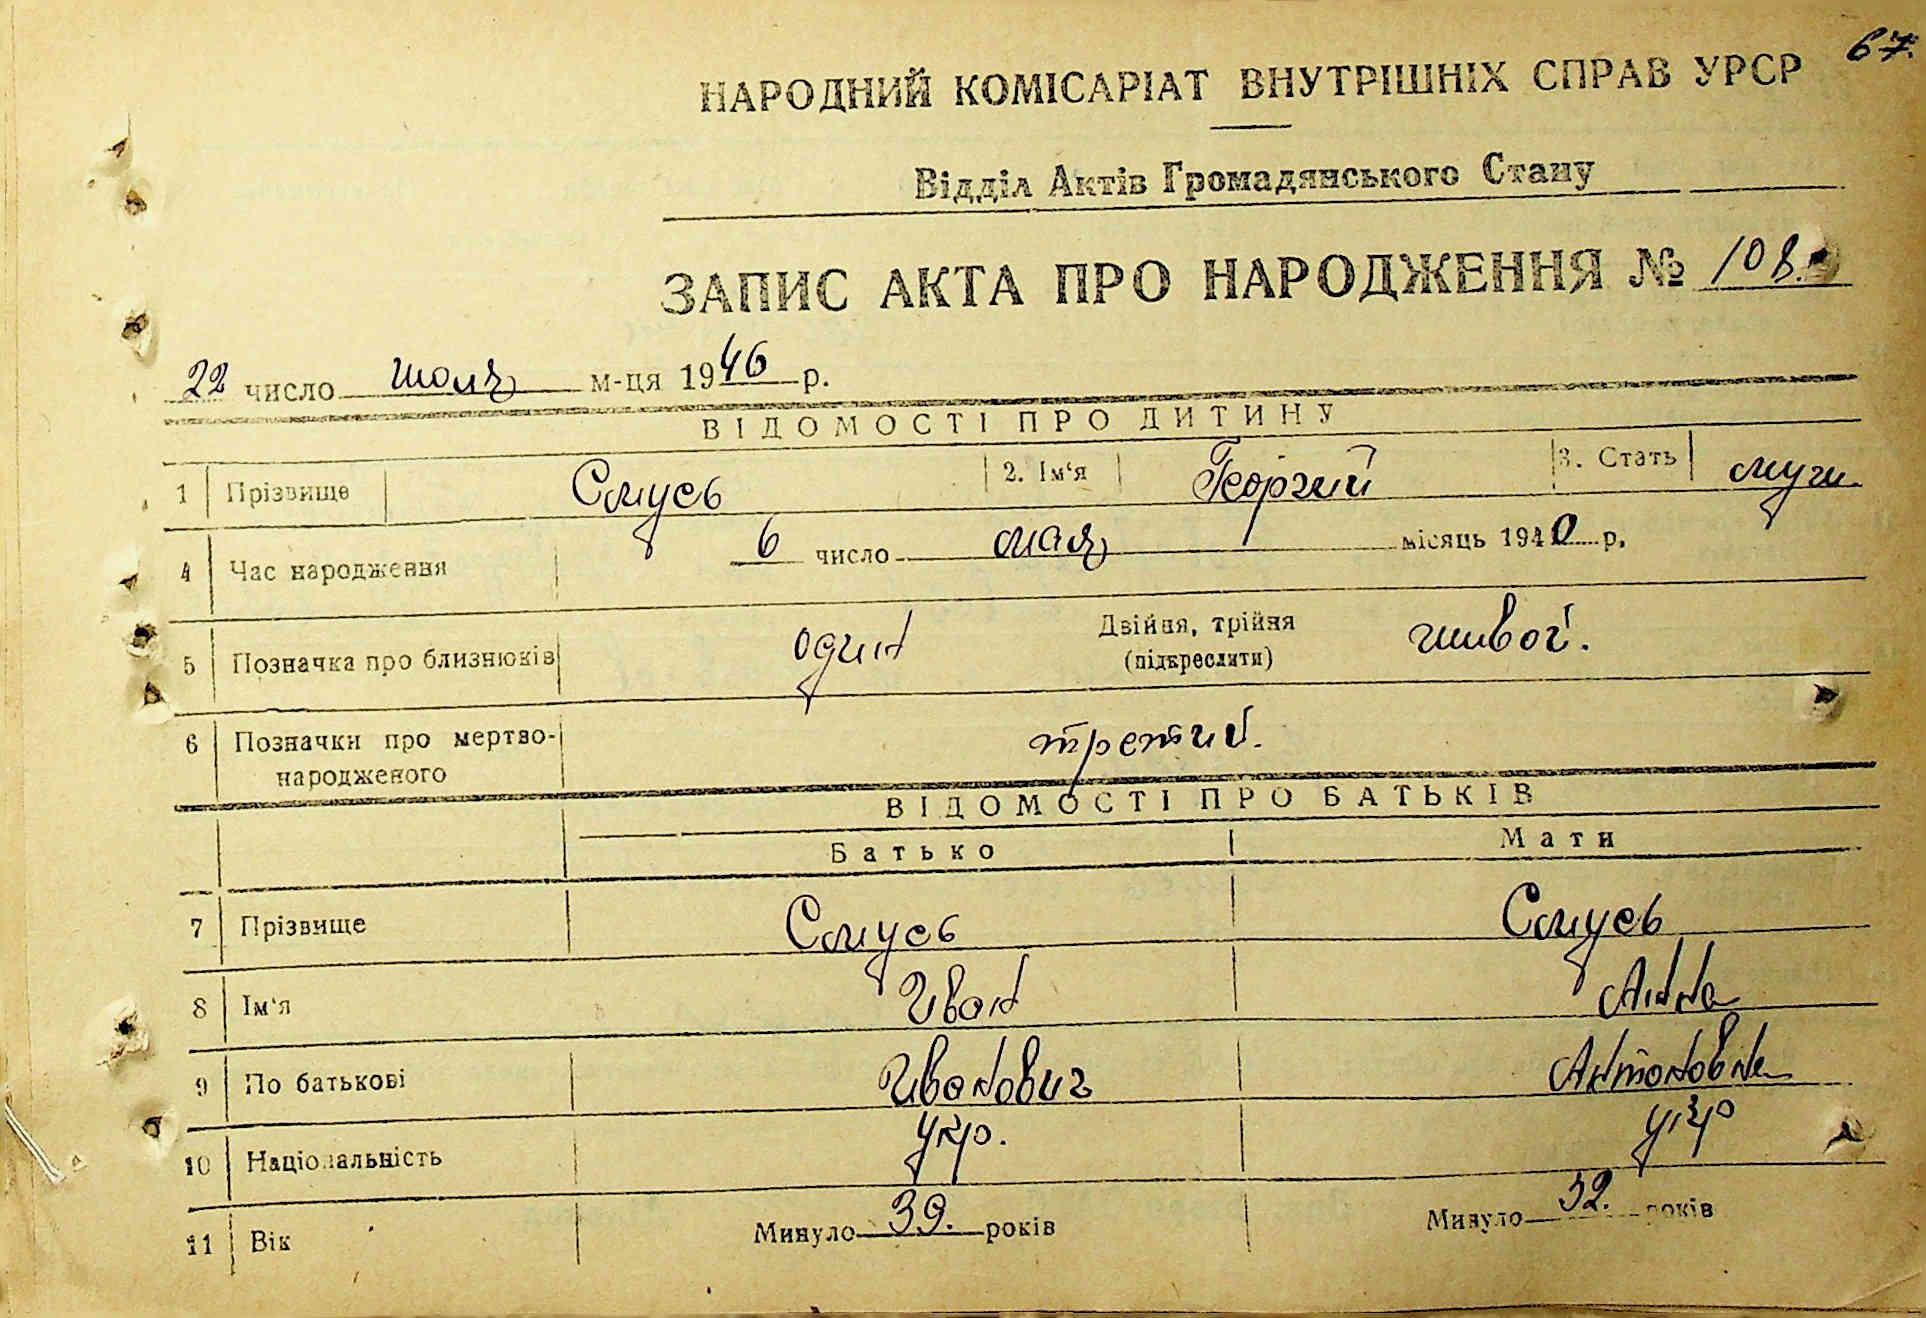 67.
НАРОДНИЙ КОМІСАРІАТ ВНУТРІШНІХ СПРАВ УРСР
Відділ Актів Громадянського Стану
ЗАПИС АКТА ПРО НАРОДЖЕННЯ № 108.
22 число июля м-ця 1946 р.
ВІДОМОСТІ ПРО ДИТИНУ
1 Прізвище Смусь 2. Ім‘я Георгий 3. Стать муж.
4 Час народження 6 число мая місяць 1940 р.
5 Позначка про близнюків один Двійня, трійня (підкреслити) живой.
6 Позначки про мертво-
народженого третий.
ВІДОМОСТІ ПРО БАТЬКІВ
Батько Мати
7 Прізвище Смусь Смусь
8 Ім‘я Иван Анна
9 По батькові Иванович Антоновна
10 Національність укр. укр
11 Вік Минуло 39. років Минуло 32. років